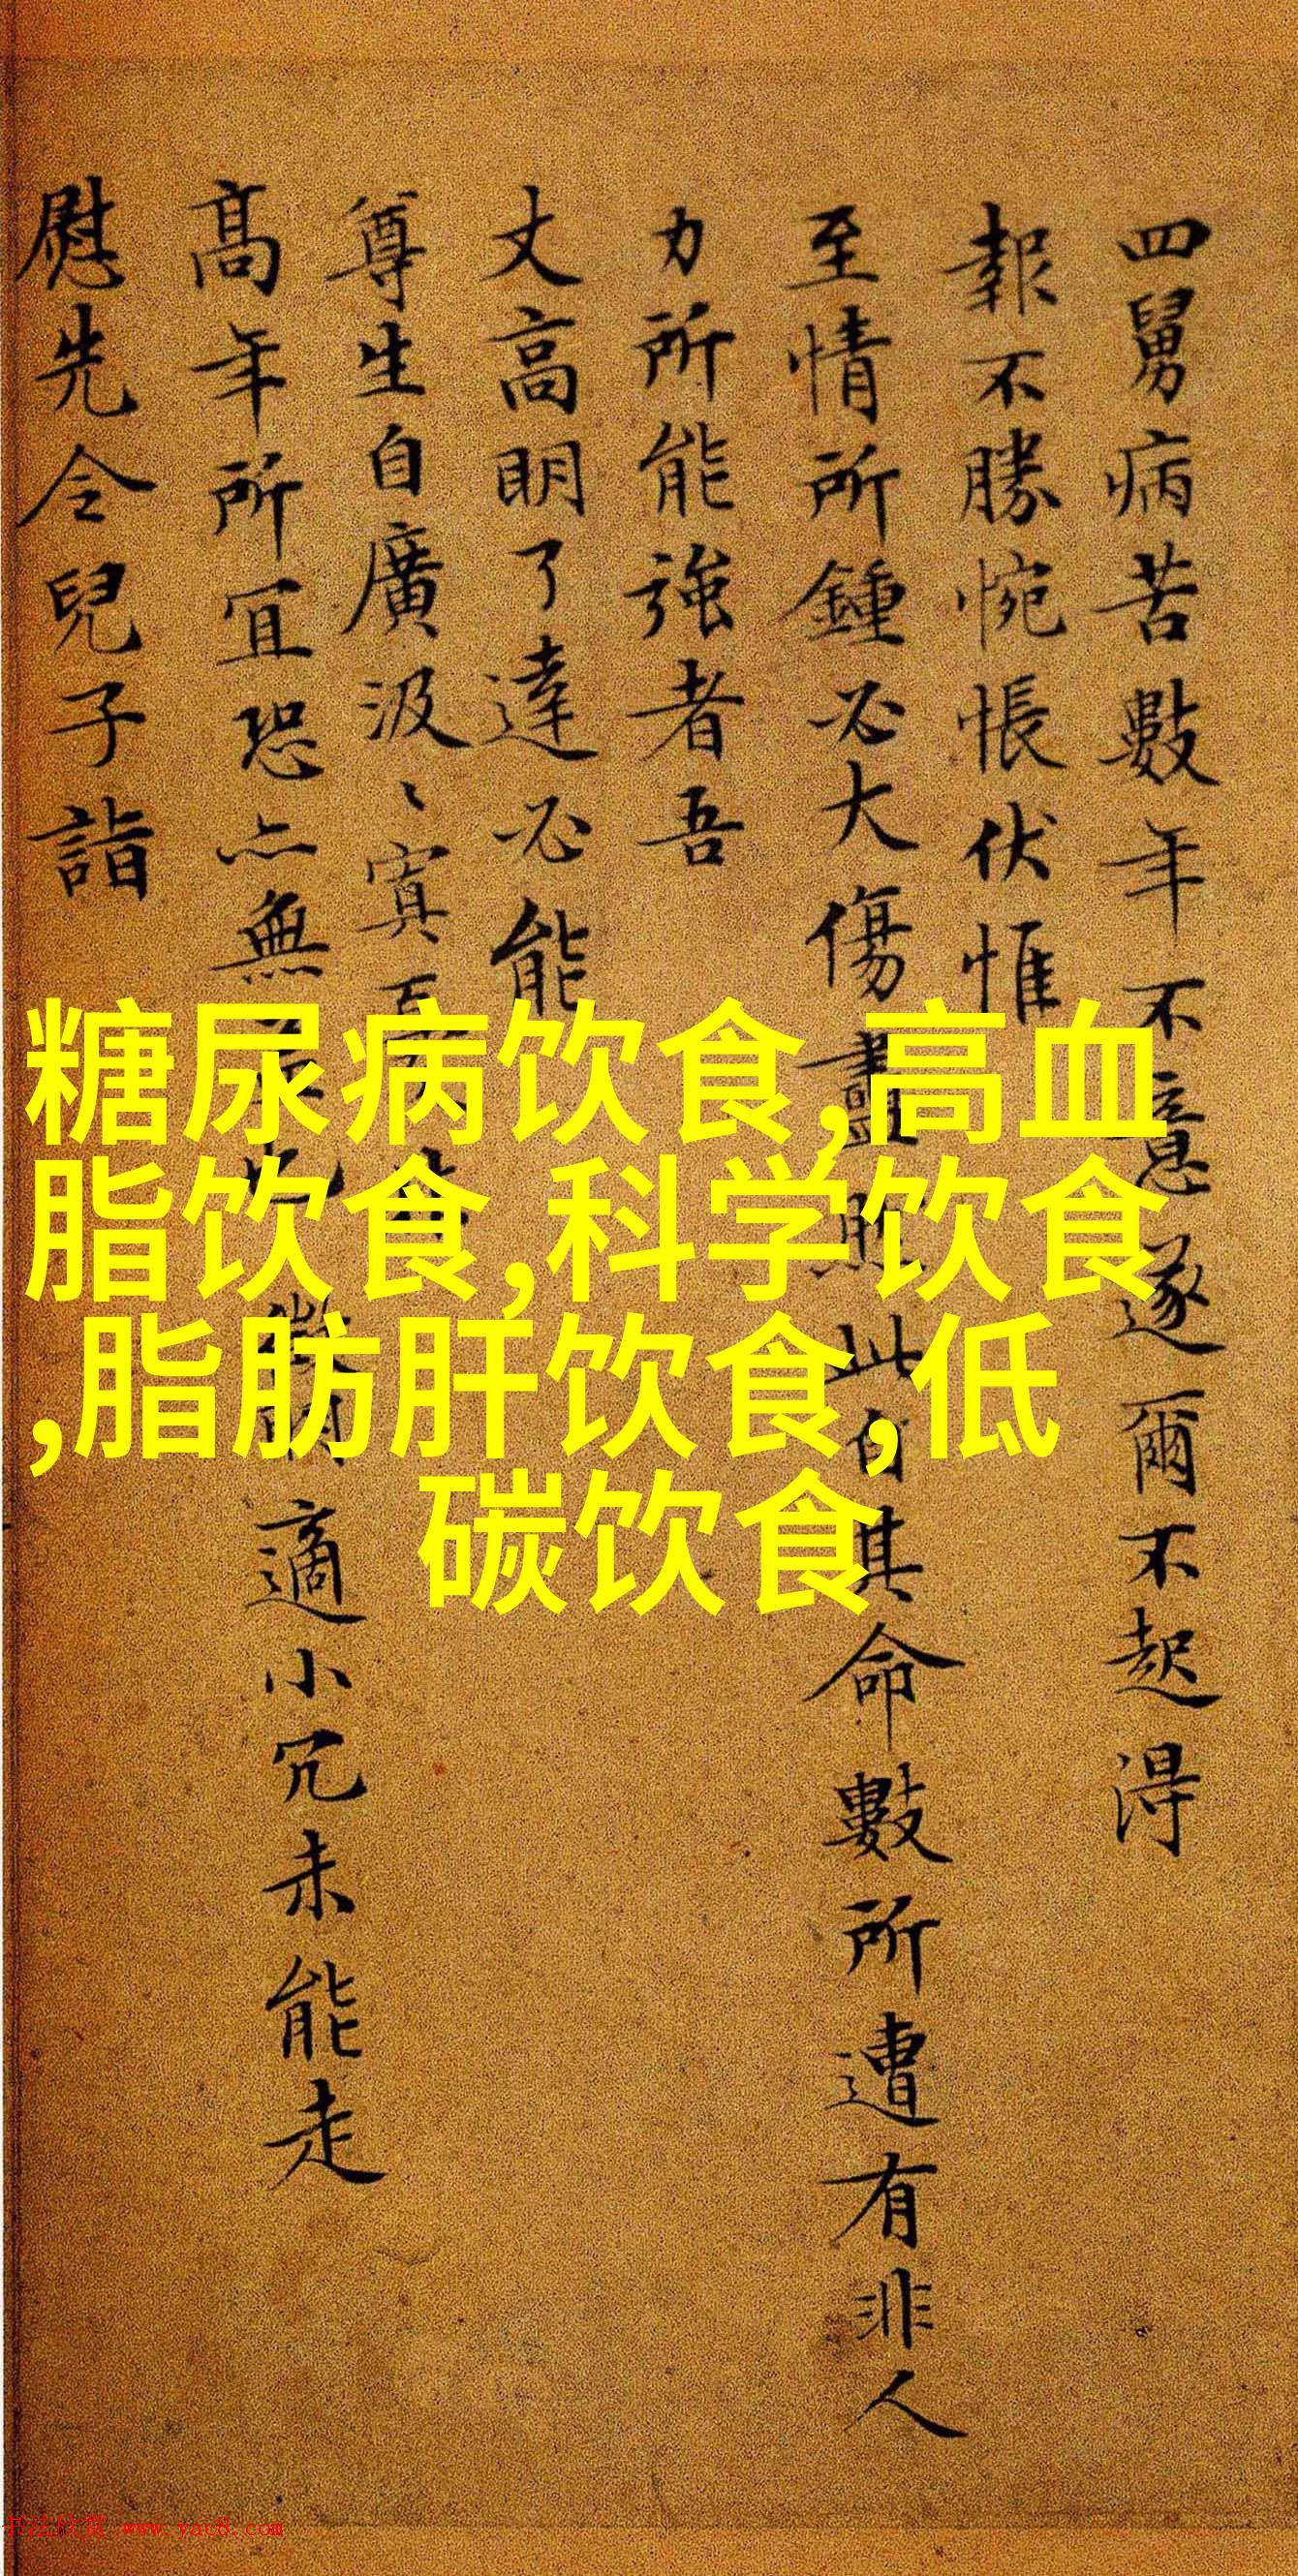 四舅病苦數年不意遂爾不起淂
報不勝惋悵伏惟
至情所鍾必大傷盡然此自其命數所遭有非人
力所能強者吾
丈高明了達必能
尊生自廣汲〻寘
高年所宜恐亦無適小冗未能走
慰先令兒子詣
糖尿病饮食,高血
脂饮食,科学饮食
,脂肪肝饮食,低
碳饮食
书法欣赏 www.yac8.com